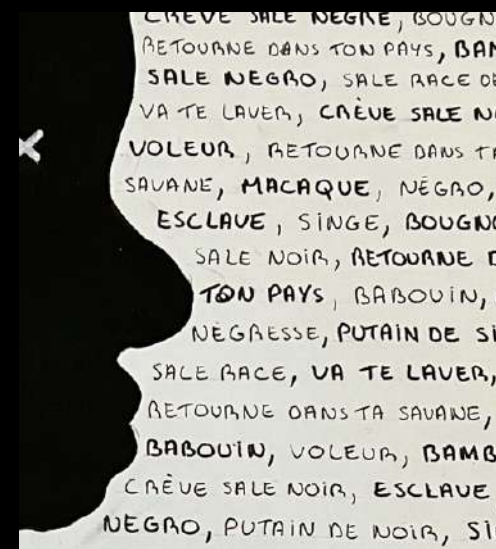 CRÈVE SALE NEGRE, BOUGN
RETOURNE DANS TON PAYS, BAM
SALE NEGRO, SALE RACE DE
VA TE LAVER, CRÈVE SALE N
VOLEUR, RETOURNE DANS TA
SAVANE, MACAQUE, NÉGRO,
ESCLAVE, SINGE, BOUGNO
SALE NOIR, RETOURNE D
TON PAYS, BABOUIN,
NÉGRESSE, PUTAIN DE SI
SALE RACE, VA TE LAVER,
RETOURNE DANS TA SAVANE,
BABOUIN, VOLEUR, BAMB
CRÈVE SALE NOIR, ESCLAVE
NEGRO, PUTAIN DE NOIR, SI